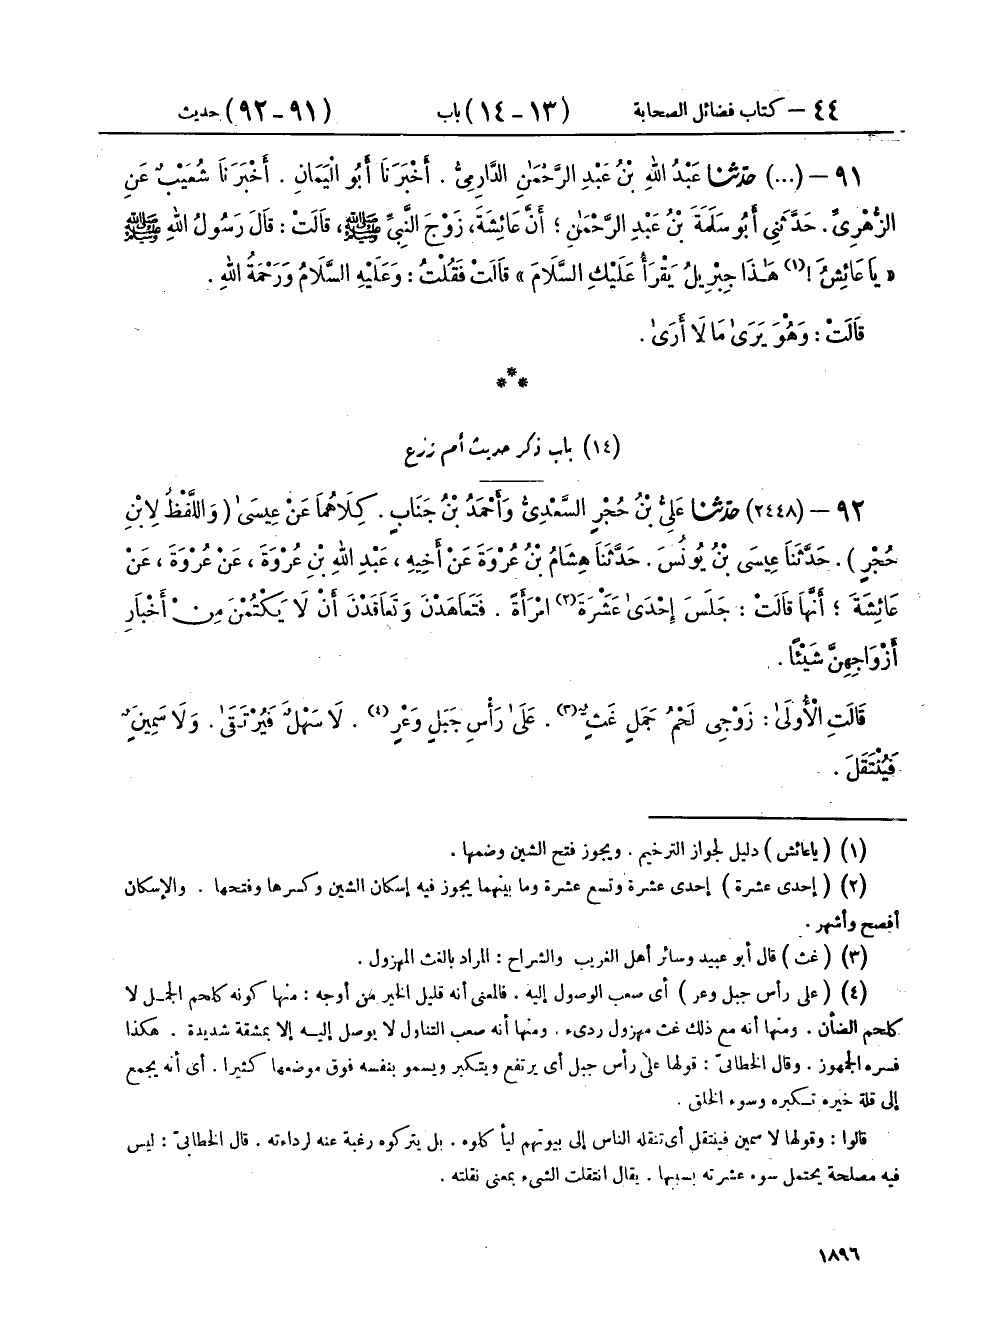 ٤٤ – كتاب فضائل الصحابة (١٣ - ١٤) باب (٩١ - ٩٢) حديث
٩١ – (...) حدّثنا عَبْدُ اللهِ بْنُ عَبْدِ الرَّحْمَٰنِ الدَّارِمِىُّ . أَخْبَرَنَا أَبُو الْيَمَانِ . أَخْبَرَنَا شُعَيْبٌ عَنِ
الزُّهْرِىِّ . حَدَّثَنِى أَبُو سَلَمَةَ بْنُ عَبْدِ الرَّحْمَٰنِ ؛ أَنَّ عَائِشَةَ، زَوْجَ النَّبِىِّ ﷺ، قَالَتْ : قَالَ رَسُولُ اللهِ ﷺ
« يَا عَائِشُ !(١) هَٰذَا جِبْرِيلُ يَقْرَأُ عَلَيْكِ السَّلَامَ » قَالَتْ فَقُلْتُ : وَعَلَيْهِ السَّلَامُ وَرَحْمَةُ اللهِ .
قَالَتْ : وَهُوَ يَرَىٰ مَا لَا أَرَىٰ .
***
(١٤) باب ذكر حديث أم زرع
٩٢ – (٢٤٤٨) حدّثنا عَلِىُّ بْنُ حُجْرٍ السَّعْدِىُّ وَأَحْمَدُ بْنُ جَنَابٍ . كِلَاهُمَا عَنْ عِيسَىٰ ( وَاللَّفْظُ لِابْنِ
حُجْرٍ ) . حَدَّثَنَا عِيسَى بْنُ يُونُسَ . حَدَّثَنَا هِشَامُ بْنُ عُرْوَةَ عَنْ أَخِيهِ ، عَبْدِ اللهِ بْنِ عُرْوَةَ ، عَنْ عُرْوَةَ ، عَنْ
عَائِشَةَ ؛ أَنَّهَا قَالَتْ : جَلَسَ إِحْدَىٰ عَشْرَةَ(٢) امْرَأَةً . فَتَعَاهَدْنَ وَتَعَاقَدْنَ أَنْ لَا يَكْتُمْنَ مِنْ أَخْبَارِ
أَزْوَاجِهِنَّ شَيْئًا .
قَالَتِ الْأُولَىٰ : زَوْجِى لَحْمُ جَمَلٍ غَثٍّ(٣) . عَلَىٰ رَأْسِ جَبَلٍ وَعْرٍ(٤) . لَا سَهْلٌ فَيُرْتَقَىٰ . وَلَا سَمِينٌ
فَيُنْتَقَلَ .
(١) ( يا عائش ) دليل لجواز الترخيم . ويجوز فتح الشين وضمها .
(٢) ( إحدى عشرة ) إحدى عشرة وتسع عشرة وما بينهما يجوز فيه إسكان الشين وكسرها وفتحها . والإسكان
أفصح وأشهر .
(٣) ( غث ) قال أبو عبيد وسائر أهل الغريب والشراح : المراد بالغث المهزول .
(٤) ( على رأس جبل وعر ) أى صعب الوصول إليه . فالمعنى أنه قليل الخير من أوجه : منها كونه كلحم الجمل لا
كلحم الضأن . ومنها أنه مع ذلك غث مهزول ردىء . ومنها أنه صعب التناول لا يوصل إليه إلا بمشقة شديدة . هكذا
فسره الجمهور . وقال الخطابىّ : قولها على رأس جبل أى يرتفع ويتكبر ويسمو بنفسه فوق موضعها كثيرا . أى أنه يجمع
إلى قلة خيره تكبره وسوء الخلق .
قالوا : وقولها لا سمين فينتقل أى تنقله الناس إلى بيوتهم ليأكلوه . بل يتركوه رغبة عنه لرداءته . قال الخطابىّ : ليس
فيه مصلحة يحتمل سوء عشرته بسببها . يقال انتقلت الشىء بمعنى نقلته .
١٨٩٦